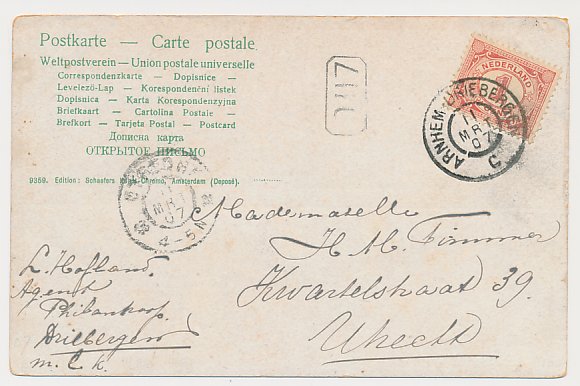 Postkarte — Carte postale.
Weltpostverein — Union postale universelle
Correspondenzkarte — Dopisnice —
Levelező-Lap — Korespondenční listek
Dopisnica — Karta Korespondenzyjna
Briefkaart — Cartolina Postale —
Brefkort — Tarjeta Postal — Postcard
Дописна карта
ОТКРЫТОЕ ПИСЬМО
9359. Edition: Schaefers Kunst-Chromo, Amsterdam (Deposé).
NEDERLAND
1
ARNHEM-DRIEBERGEN
11
MRT
07
C
DRIEBERGEN
11
MRT
07
4-5N
Mademoiselle
H. M. Timmer
Kwartelstraat 39.
Utrecht
L. Hofland.
Agent
Driebergen
m. C. k.